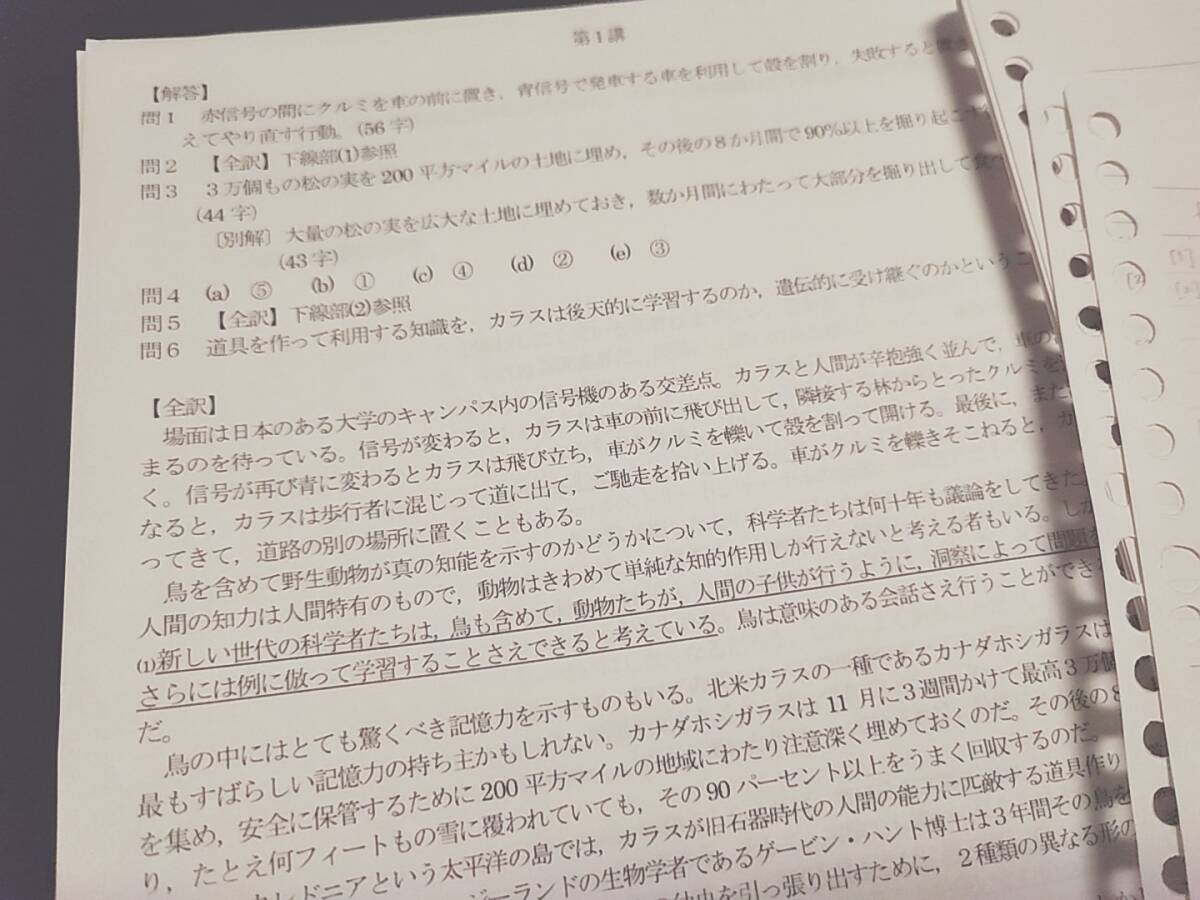 第1講
【解答】
問1 赤信号の間にクルミを車の前に置き，青信号で発車する車を利用して殻を割り，失敗すると置き
えてやり直す行動。(56字)
問2 【全訳】下線部(1)参照
問3 3万個もの松の実を200平方マイルの土地に埋め，その後の8か月間で90%以上を掘り起こす
(44字)
〔別解〕 大量の松の実を広大な土地に埋めておき，数か月間にわたって大部分を掘り出して食べ
(43字)
問4 (a) ⑤ (b) ① (c) ④ (d) ② (e) ③
問5 【全訳】下線部(2)参照
問6 道具を作って利用する知識を，カラスは後天的に学習するのか，遺伝的に受け継ぐのかというこ
【全訳】
場面は日本のある大学のキャンパス内の信号機のある交差点。カラスと人間が辛抱強く並んで，車の
まるのを待っている。信号が変わると，カラスは車の前に飛び出して，隣接する林からとったクルミを
く。信号が再び青に変わるとカラスは飛び立ち，車がクルミを轢いて殻を割って開ける。最後に，また
なると，カラスは歩行者に混じって道に出て，ご馳走を拾い上げる。車がクルミを轢きそこねると，カ
ってきて，道路の別の場所に置くこともある。
鳥を含めて野生動物が真の知能を示すのかどうかについて，科学者たちは何十年も議論をしてきた。
人間の知力は人間特有のもので，動物はきわめて単純な知的作用しか行えないと考える者もいる。しか
(1)新しい世代の科学者たちは，鳥も含めて，動物たちが，人間の子供が行うように，洞察によって問題を
さらには例に倣って学習することさえできると考えている。鳥は意味のある会話さえ行うことができ
だ。
鳥の中にはとても驚くべき記憶力を示すものもいる。北米カラスの一種であるカナダホシガラスは
最もすばらしい記憶力の持ち主かもしれない。カナダホシガラスは11月に3週間かけて最高3万個
を集め，安全に保管するために200平方マイルの地域にわたり注意深く埋めておくのだ。その後の8
り，たとえ何フィートもの雪に覆われていても，その90パーセント以上をうまく回収するのだ。
レドニアという太平洋の島では，カラスが旧石器時代の人間の能力に匹敵する道具作り
ジーランドの生物学者であるゲービン・ハント博士は3年間その鳥を
を引っ張り出すために，2種類の異なる形の